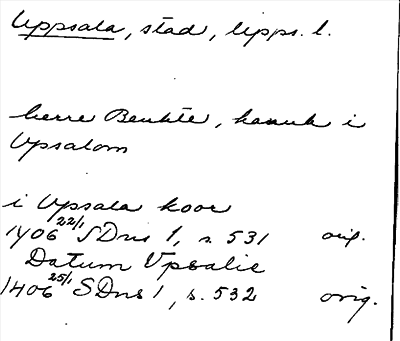 Uppsala, stad, Upps. l.
herre Benkte, kanuk i
Upsalom
i Upsala koor
1406 22/1 SDns 1, s. 531 orig.
Datum Upsalie
1406 25/1 SDns 1, s. 532 orig.